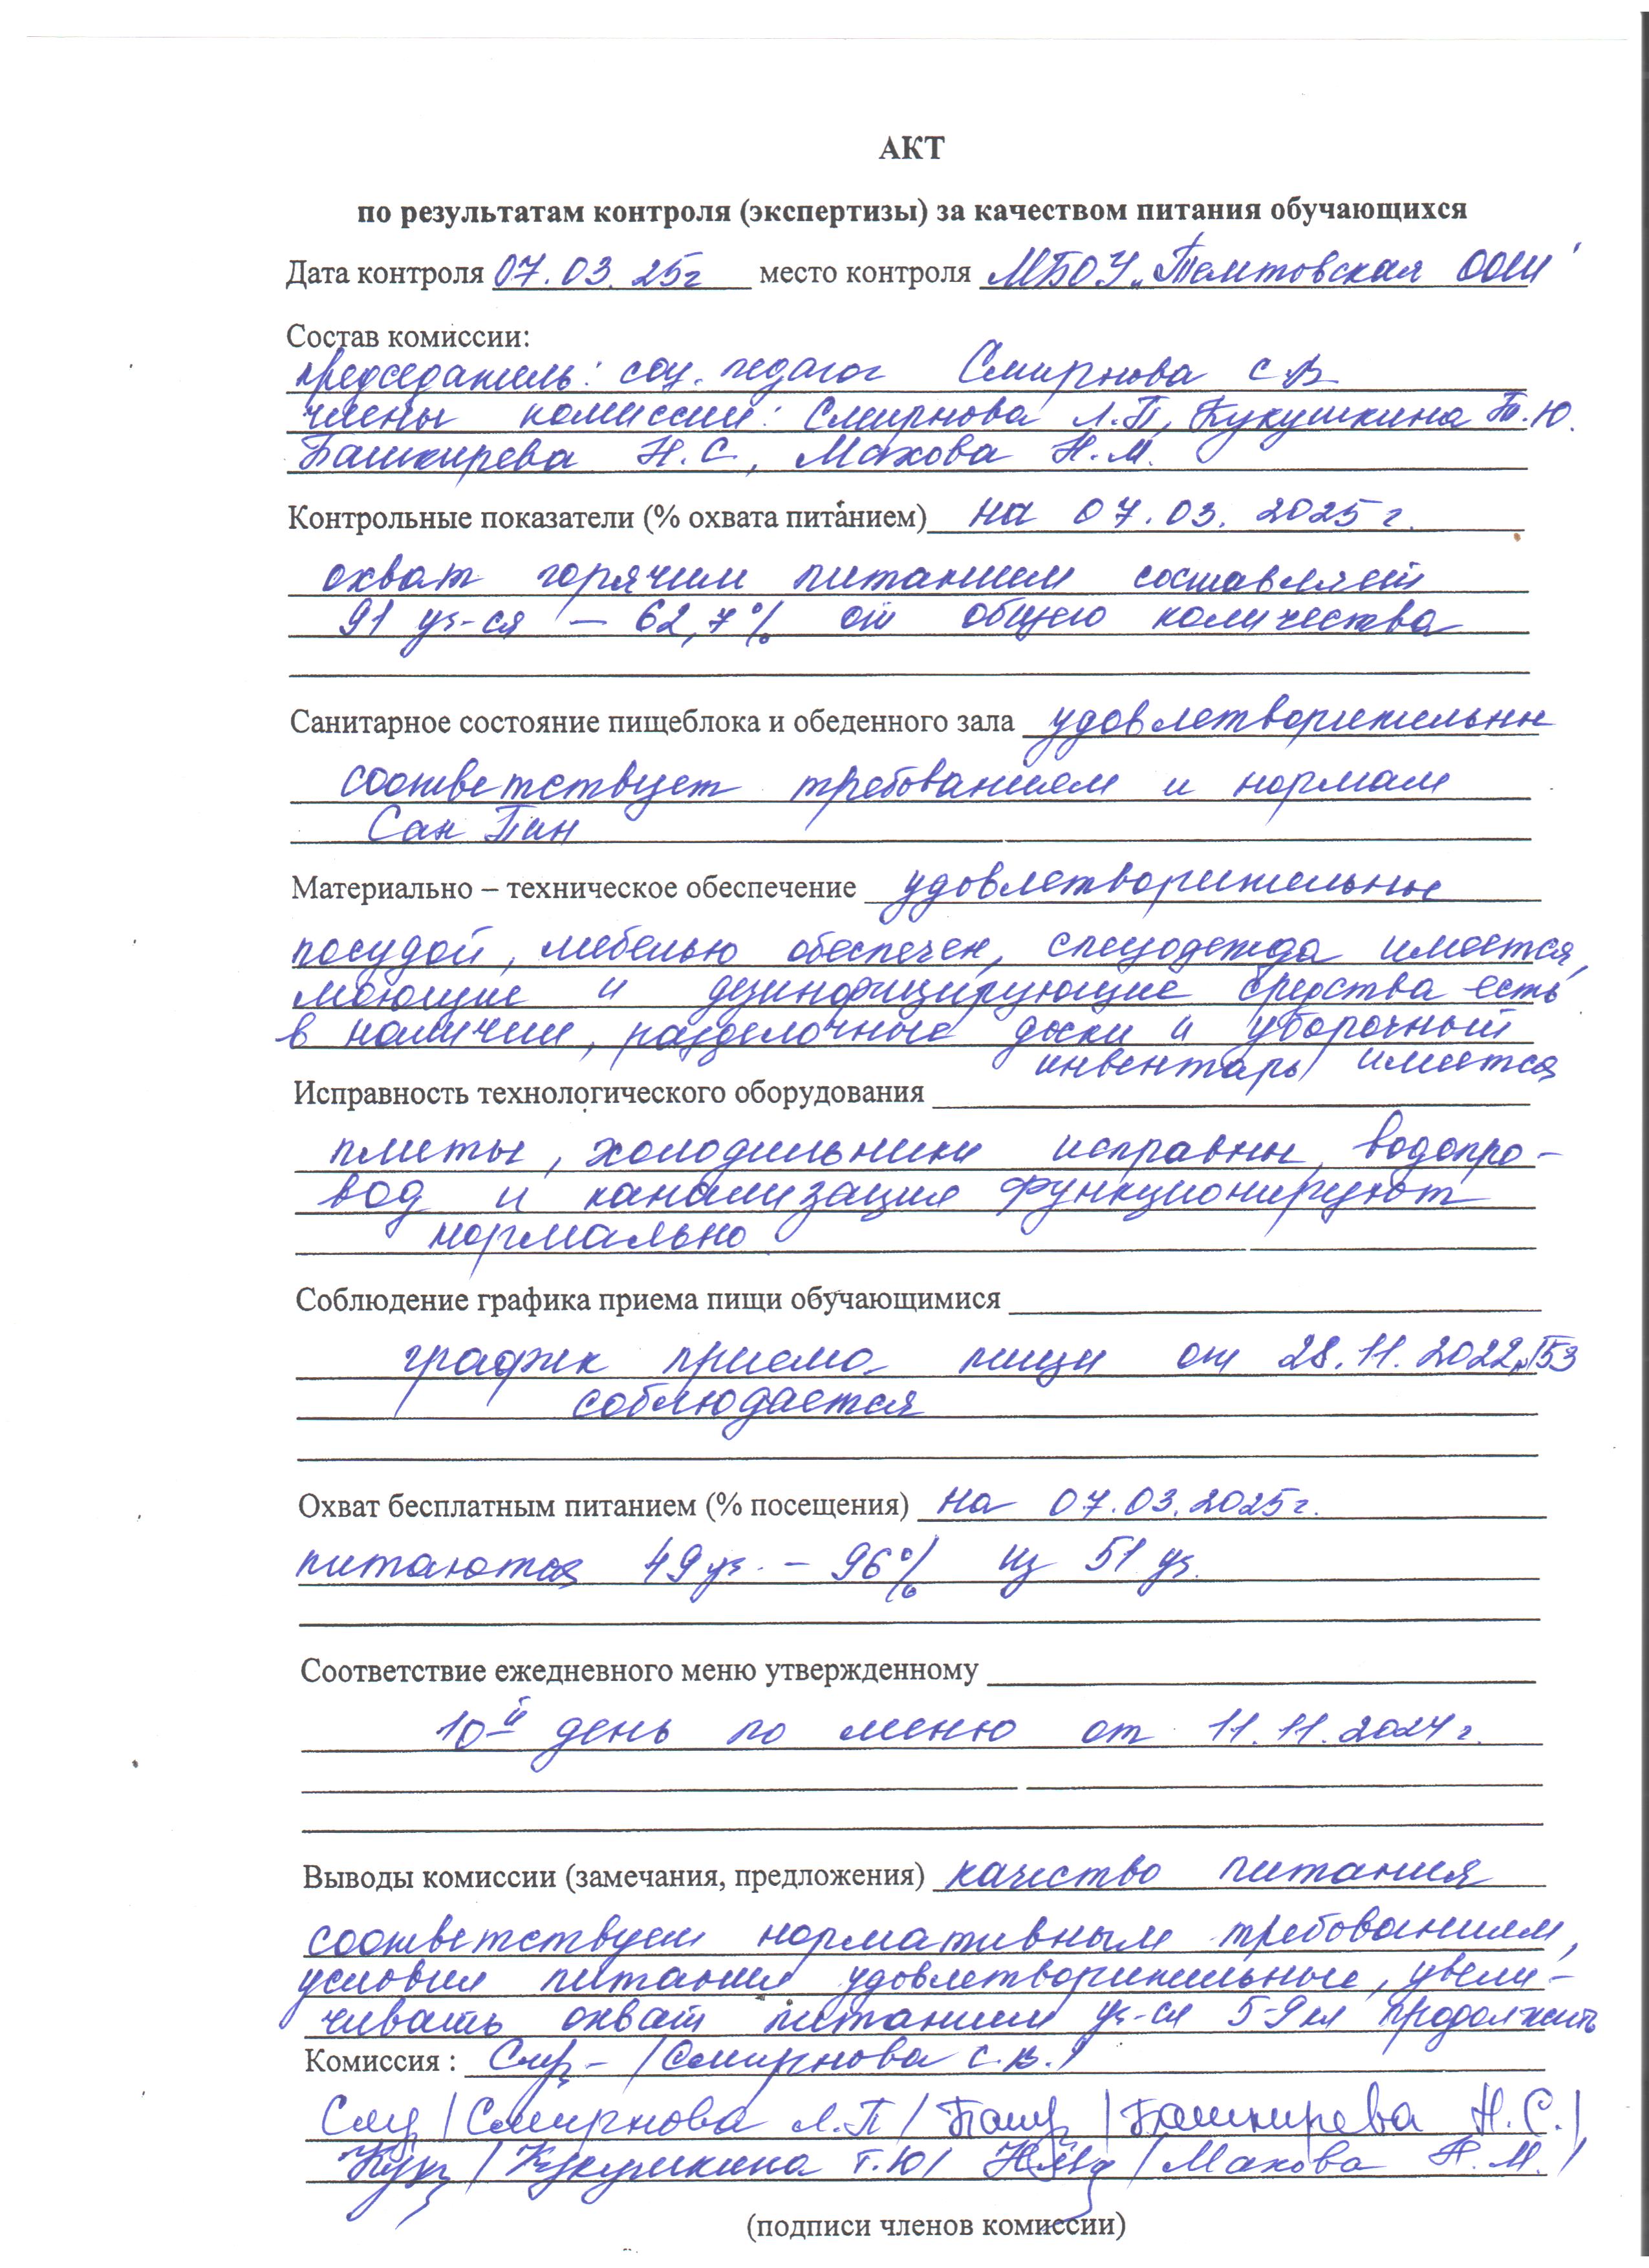 АКТ
по результатам контроля (экспертизы) за качеством питания обучающихся
Дата контроля 07.03.25г место контроля МБОУ „Темтовская ООШ"
Состав комиссии:
председатель: соц. педагог Смирнова С.В
члены комиссии: Смирнова Л.П, Кукушкина Т.Ю.
Башкирева Н.С, Махова Н.М.
Контрольные показатели (% охвата питанием) на 07.03.2025 г.
охват горячим питанием составляет
91 уч-ся – 62,7% от общего количества
Санитарное состояние пищеблока и обеденного зала удовлетворительны
соответствует требованиям и нормам
Сан Пин
Материально – техническое обеспечение удовлетворительные
посудой, мебелью обеспечен, спецодежда имеется,
моющие и дезинфицирующие средства есть
в наличии, разделочные доски и уборочный
инвентарь имеется
Исправность технологического оборудования
плиты, холодильники исправны, водопро-
вод и канализация функционируют
нормально
Соблюдение графика приема пищи обучающимися
график приема пищи от 28.11.2022 №153
соблюдается
Охват бесплатным питанием (% посещения) на 07.03.2025г.
питаются 49 уч. – 96% из 51 уч.
Соответствие ежедневного меню утвержденному
10й день по меню от 11.11.2024 г.
Выводы комиссии (замечания, предложения) качество питания
соответствует нормативным требованиям,
условия питания удовлетворительные, увели-
чивать охват питанием уч-ся 5-9 кл продолжить
Комиссия : /Смирнова С.В./
/Смирнова Л.П/ /Башкирева Н.С./
/Кукушкина Т.Ю/ /Махова Н.М./
(подписи членов комиссии)